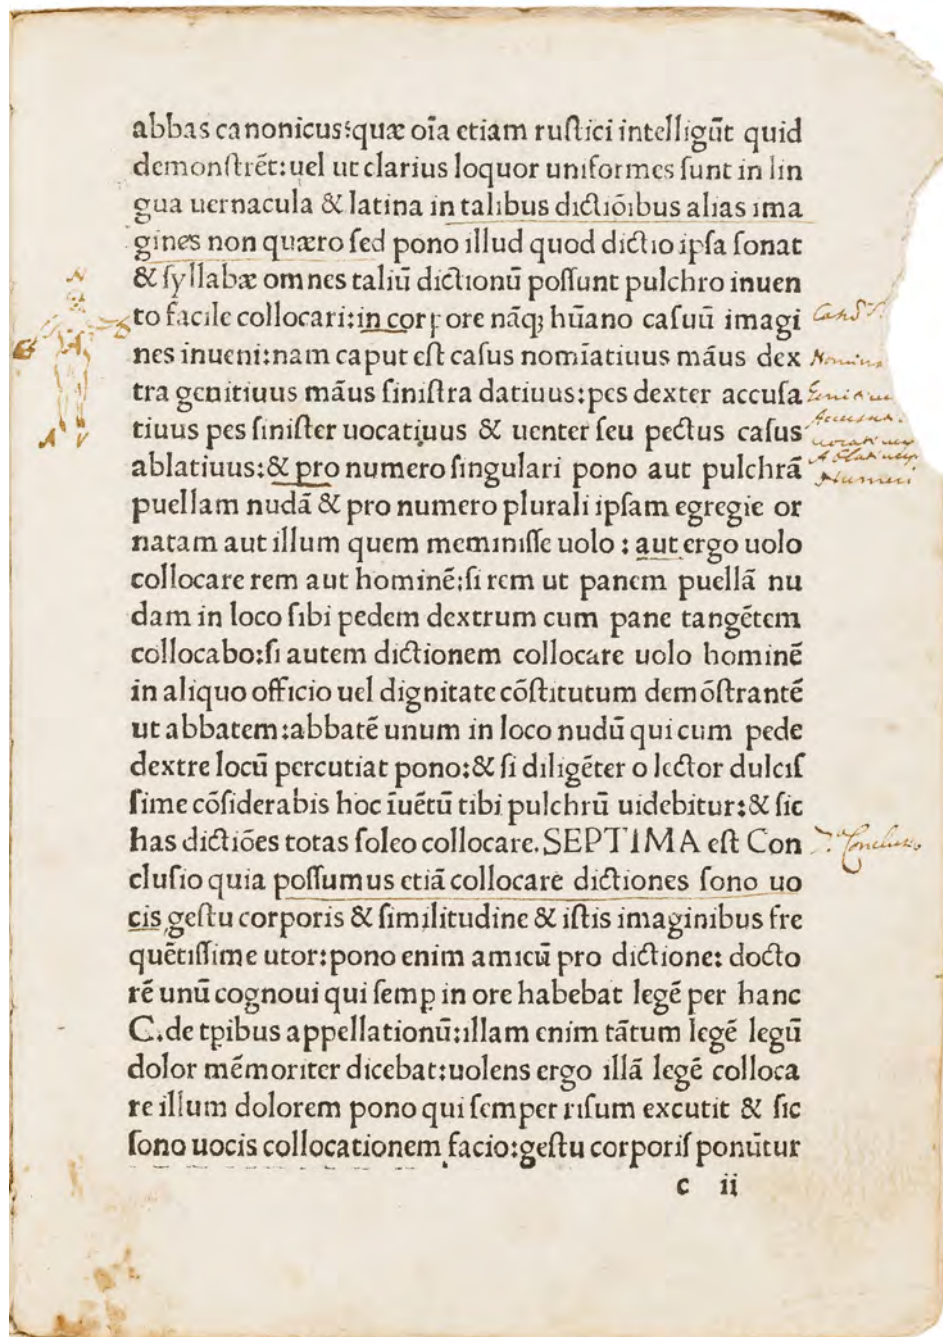 abbas canonicus:quæ oīa etiam ruſtici intelligūt quid
demonſtrēt:uel ut clarius loquor uniformes ſunt in lin
gua uernacula & latina in talibus dictiōibus alias ima
gines non quæro ſed pono illud quod dictio ipſa ſonat
& ſyllabæ omnes taliū dictionū poſſunt pulchro inuen
to facile collocari:in corpore nāqꝫ hūano caſuū imagi
nes inueni:nam caput eſt caſus nomīatiuus māus dex
tra genitiuus māus ſiniſtra datiuus:pes dexter accuſa
tiuus pes ſiniſter uocatiuus & uenter ſeu pectus caſus
ablatiuus:& pro numero ſingulari pono aut pulchrā
puellam nudā & pro numero plurali ipſam egregie or
natam aut illum quem meminiſſe uolo : aut ergo uolo
collocare rem aut hominē:ſi rem ut panem puellā nu
dam in loco ſibi pedem dextrum cum pane tangētem
collocabo:ſi autem dictionem collocare uolo hominē
in aliquo officio uel dignitate cōſtitutum demōſtrantē
ut abbatem:abbatē unum in loco nudū qui cum pede
dextre locū percutiat pono:& ſi diligēter o lector dulciſ
ſime cōſiderabis hoc īuētū tibi pulchrū uidebitur:& ſic
has dictiōes totas ſoleo collocare. SEPTIMA eſt Con
cluſio quia poſſumus etiā collocare dictiones ſono uo
cis geſtu corporis & ſimilitudine & iſtis imaginibus fre
quētiſſime utor:pono enim amicū pro dictione: docto
rē unū cognoui qui ſemꝑ in ore habebat legē per hanc
C.de tꝑibus appellationū:illam enim tātum legē legū
dolor mēmoriter dicebat:uolens ergo illā legē colloca
re illum dolorem pono qui ſemper riſum excutit & ſic
ſono uocis collocationem facio:geſtu corporiſ ponūtur
c ii
N
G
D
A
A V
Nomina
Genitiuu
Accusat.
uocatiuus
Ablatiuus
Numeri
7.ª Conclusio